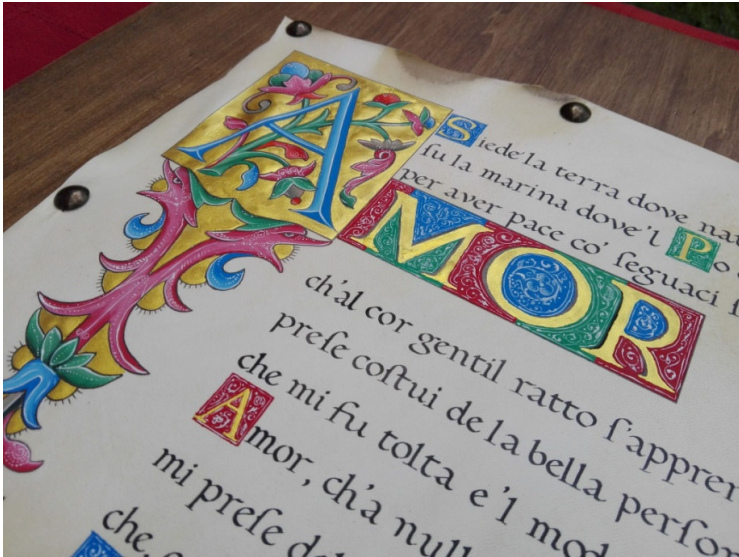 Siede la terra dove
fu la marina dove'l Po
per aver pace co' seguaci
AMOR
ch'al cor gentil ratto s'appren
prese costui de la bella person
che mi fu tolta e'l mod
Amor, ch'a null
mi prese del
che,